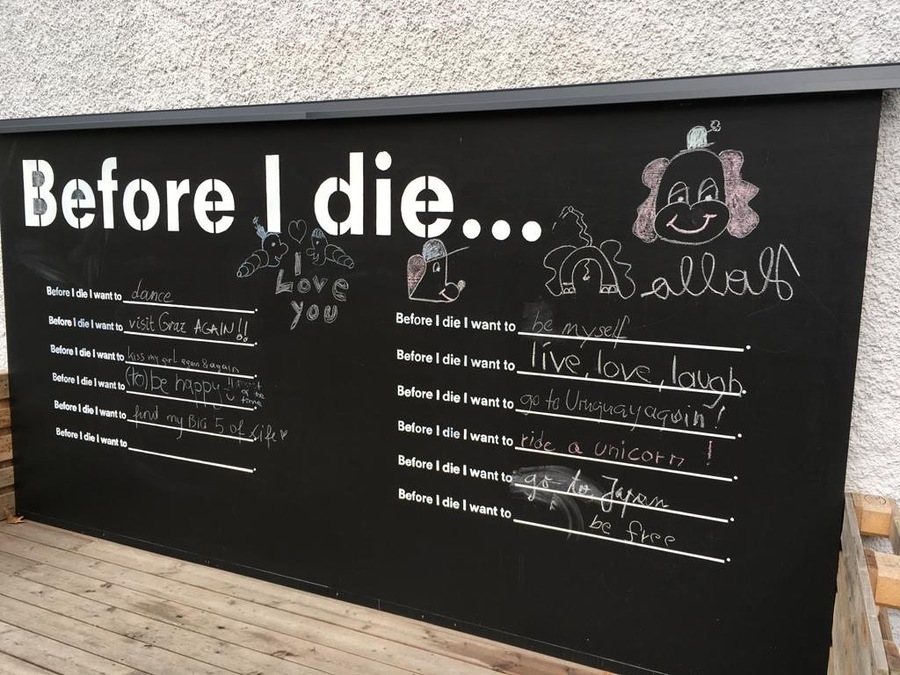 Before I die...
I
Love
you
allalf
Before I die I want to dance.
Before I die I want to visit Graz AGAIN!!.
Before I die I want to kiss my girl again & again.
Before I die I want to (to) be happy !! most of the time.
Before I die I want to find my BIG 5 of Life♥.
Before I die I want to .
Before I die I want to be myself.
Before I die I want to live, love, laugh.
Before I die I want to go to Uruguay again!.
Before I die I want to ride a unicorn !.
Before I die I want to go to Japan.
Before I die I want to be free.